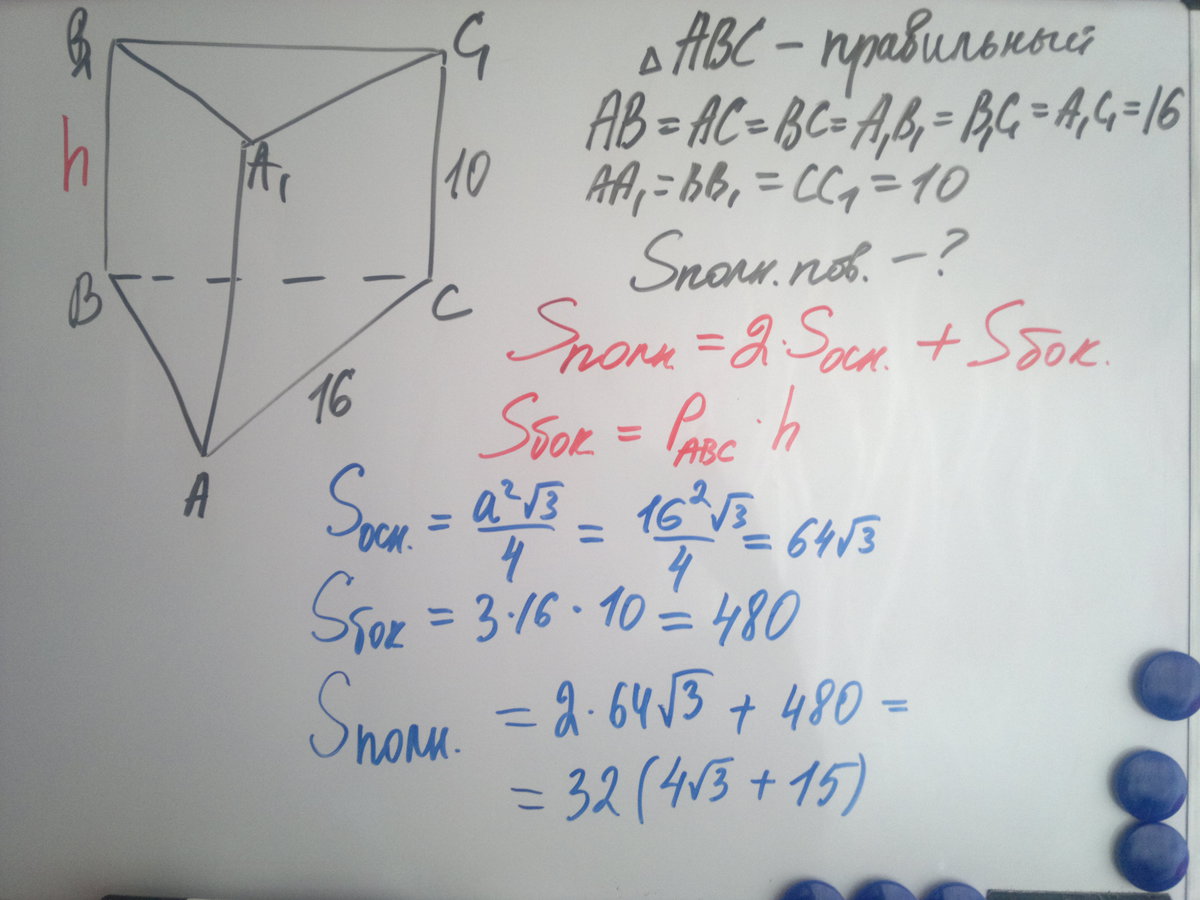 B₁
C₁
h
A₁
10
B
C
16
A
△ABC – правильный
AB = AC = BC = A₁B₁ = B₁C₁ = A₁C₁ = 16
AA₁ = BB₁ = CC₁ = 10
Sполн. пов. – ?
Sполн. = 2·Sосн. + Sбок.
Sбок = P_ABC · h
Sосн. = a²√3/4 = 16²√3/4 = 64√3
Sбок = 3·16·10 = 480
Sполн. = 2·64√3 + 480 =
= 32(4√3 + 15)